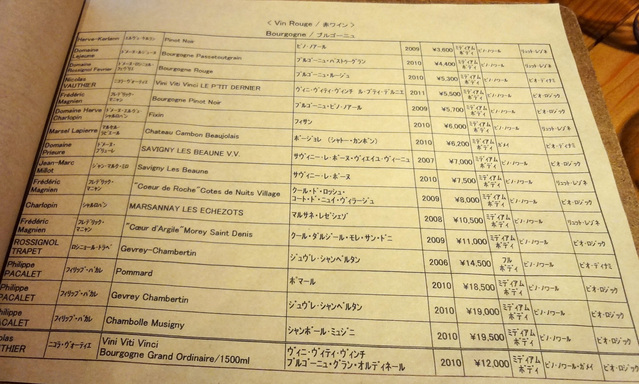 < Vin Rouge / 赤ワイン >
Bourgogne / ブルゴーニュ
Pinot Noir ピノ・ノアール 2009 ¥3,600 ミディアムボディ ピノ・ノワール
Domaine Lejeune Bourgogne Passetoutgrain 2010 ¥4,400 ミディアムボディ ピノ・ノワール
Domaine Bourgogne Rouge ブルゴーニュ・ルージュ 2010 ¥5,300 ミディアムボディ ピノ・ノワール
Nicolas VAUTHIER Vini Viti Vinci LE P'TIT DERNIER 2011 ¥5,500 ミディアムボディ ピノ・ノワール
Frédéric Magnien フレデリック・マニャン Bourgogne Pinot Noir ブルゴーニュ・ピノ・ノアール 2009 ¥5,700 ミディアムボディ ピノ・ノワール ビオ・ロジック
Domaine Herve Charlopin Fixin フィサン 2010 ¥6,000 ミディアムボディ ピノ・ノワール
Marcel Lapierre Chateau Cambon Beaujolais ボージョレ (シャトー・カンボン) 2010 ¥6,200 ミディアムボディ ガメイ ビオ・ロジック
Domaine Prieure SAVIGNY LES BEAUNE V.V. サヴィニー・レ・ボーヌ・ヴィエイユ・ヴィーニュ 2007 ¥7,000 ミディアムボディ ピノ・ノワール
Jean-Marc Millot Savigny Les Beaune サヴィニー・レ・ボーヌ 2010 ¥7,500 ミディアムボディ ピノ・ノワール
Frédéric Magnien フレデリック・マニャン "Coeur de Roche" Cotes de Nuits Village クール・ド・ロッシュ・コート・ド・ニュイ・ヴィラージュ 2009 ¥8,000 ミディアムボディ ピノ・ノワール ビオ・ロジック
Charlopin シャルロパン MARSANNAY LES ECHEZOTS マルサネ・レゼシェゾ 2008 ¥10,500 ミディアムボディ ピノ・ノワール
Frédéric Magnien フレデリック・マニャン "Cœur d'Argile" Morey Saint Denis クール・ダルジール・モレ・サン・ドニ 2009 ¥11,000 ミディアムボディ ピノ・ノワール ビオ・ロジック
ROSSIGNOL TRAPET ロシニョール・トラペ Gevrey-Chambertin ジュヴレ・シャンベルタン 2006 ¥14,500 フルボディ ピノ・ノワール ビオ・ディナミ
Philippe PACALET フィリップ・パカレ Pommard ポマール 2010 ¥18,500 ミディアムボディ ピノ・ノワール ビオ・ロジック
Philippe PACALET フィリップ・パカレ Gevrey Chambertin ジュヴレ・シャンベルタン 2010 ¥19,000 ミディアムボディ ピノ・ノワール ビオ・ロジック
Philippe PACALET フィリップ・パカレ Chambolle Musigny シャンボール・ミュジニ 2010 ¥19,500 ミディアムボディ ピノ・ノワール ビオ・ロジック
ニコラ・ヴォーティエ Vini Viti Vinci Bourgogne Grand Ordinaire/1500ml ヴィニ・ヴィティ・ヴィンチ ブルゴーニュ・グラン・オルディネール 2010 ¥12,000 ミディアムボディ ピノ・ノワール・ガメイ ビオ・ロジック